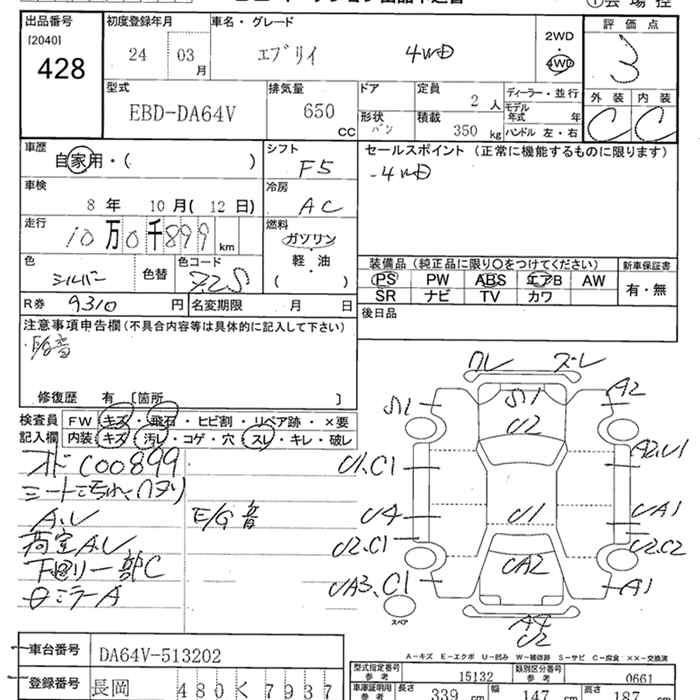 ①会場控
出品番号 初度登録年月 車名・グレード 2WD 評価点
[2040]
428 24 03月 エブリイ 4WD 4WD 3
型式 排気量 ドア 定員 ディーラー・並行 外装 内装
EBD-DA64V 650 CC 2人 モデル年式 年 C C
形状 バン 積載 350kg ハンドル 左・右
車歴 シフト セールスポイント (正常に機能するものに限ります)
自家用・( ) F5 -4WD
車検 冷房
8年 10月(12日) AC
走行 燃料
10万0千899km ガソリン
軽・油
色 色替 色コード ( )
シルバー Z2S
装備品 (純正品に限り〇をつけてください) 新車保証書
PS PW ABS エアB AW 有・無
SR ナビ TV カワ
R券 9310円 名変期限 月 日 後日品
注意事項申告欄(不具合内容等は具体的に記入して下さい)
E/G音
修復歴 有 [箇所 ]
検査員 FW キズ・飛石・ヒビ割・リペア跡・×要
記入欄 内装 キズ・汚れ・コゲ・穴・スレ・キレ・破レ
C00899
シート汚れ
A.U E/G音
荷室A.U
下回リ一部C
ワレ ズレ
S1 S1 A2
U2
U1.C1 A2.U1
U4 U1 UA1
U2.C1 U2.C2
UA3.C1 UA2 A1
スペア A4
U2
A-キズ E-エクボ U-凹み W-補修跡 S-サビ C-腐食 ××-交換済
車台番号 DA64V-513202
型式指定番号 参考 15132 類別区分番号 参考 0661
登録番号 長岡 480 く 7937
車庫証明用 参考 長さ 339cm 幅 147cm 高さ 187cm